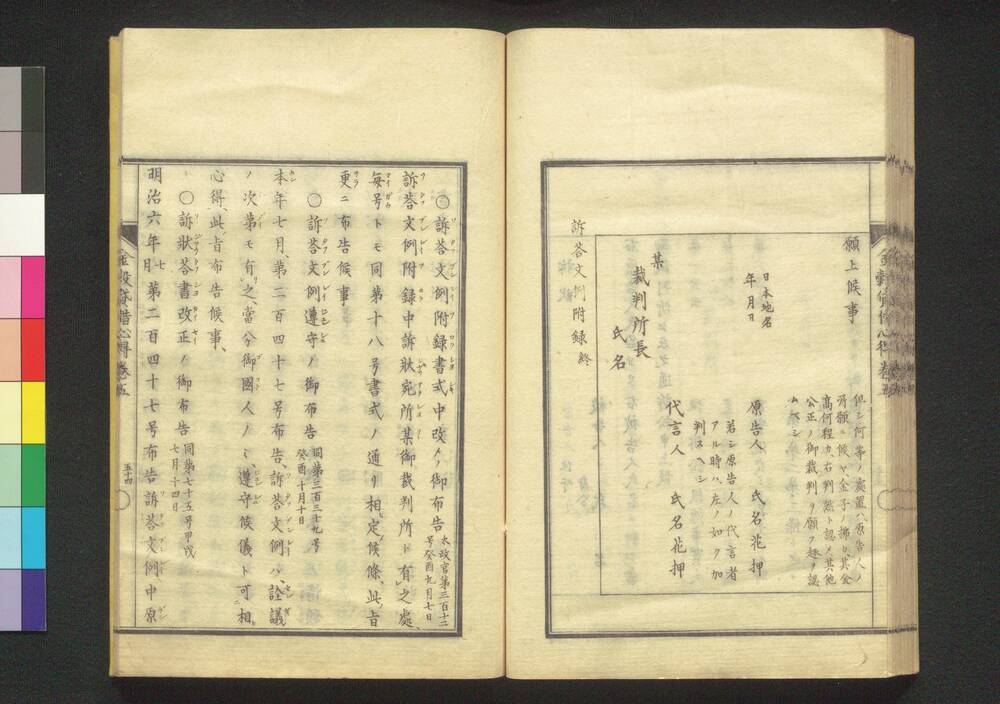 願上候事
但シ何等ノ處置ハ原告人ノ
所願ニ候ヤ金子ノ拂カ其金
高何程カ右判然ト認メ其他
公正ノ御裁判ヲ願フ趣ヲ認
ムヘシ
原告人 氏名花押
若シ原告人ノ代言者
アル時ハ左ノ如ク加
判スヘシ
代言人 氏名花押
日本地名
年月日
某
裁判所長
氏名
訴答文例附録終
〇訴答文例附録書式中改メノ御布告 太政官第三百十二号癸酉九月七日
訴答文例附録中訴狀宛所某御裁判所ト有之處、
毎号トモ同第十八号書式ノ通リ相定候條、此旨
更ニ布告候事
〇訴答文例遵守ノ御布告 同第三百三十九号癸酉十月十日
本年七月、第二百四十七号布告、訴答文例ハ、詮議
ノ次第モ有之、當分御國人ノミ、遵守候儀ト可相
心得、此旨布告候事、
〇訴狀答書改正ノ御布告 同第七十五号甲戌七月十四日
明治六年七月第二百四十七号布告訴答文例中原
金穀貸借心得 卷五
五十四